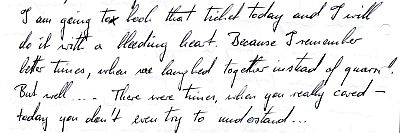 I am going to book that ticket today and I will
do it with a bleeding heart. Because I remember
better times, when we laughed together instead of quarrel.
But well .... There were times, when you really cared –
today you don't even try to understand...